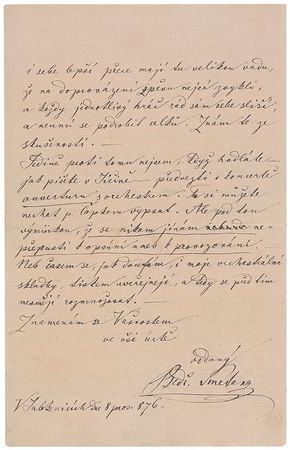 i sebe lepší přece mají tu velikou vadu,
že na doprovázení zpěvu nejsou zvyklí,
a každý jednotlivý hráč rád sám sebe slyší,
a neumí se podrobit celku. Znám to ze
zkušenosti. —
Jediné proti tomu nejsem, když hodláte —
jak píšete v Jičíně — předvésti v koncertě
ouverturu s orchestrem. Tu si můžete
nechat p. Čapkem vypsat. Ale pod tou
výmínkou, že se nikam jinam ne-
propustí k opsání aneb k provozování.
Neb časem se, jak doufám, i moje orchestrální
skladby, tiskem uveřejnějí, a tedy se před tím
nesmějí rozmnožovat. —
Znamenám se Vašnostem
ve vší úctě
oddaný
Bedř. Smetana
V Jabkenicích dne 8 pros. 876.